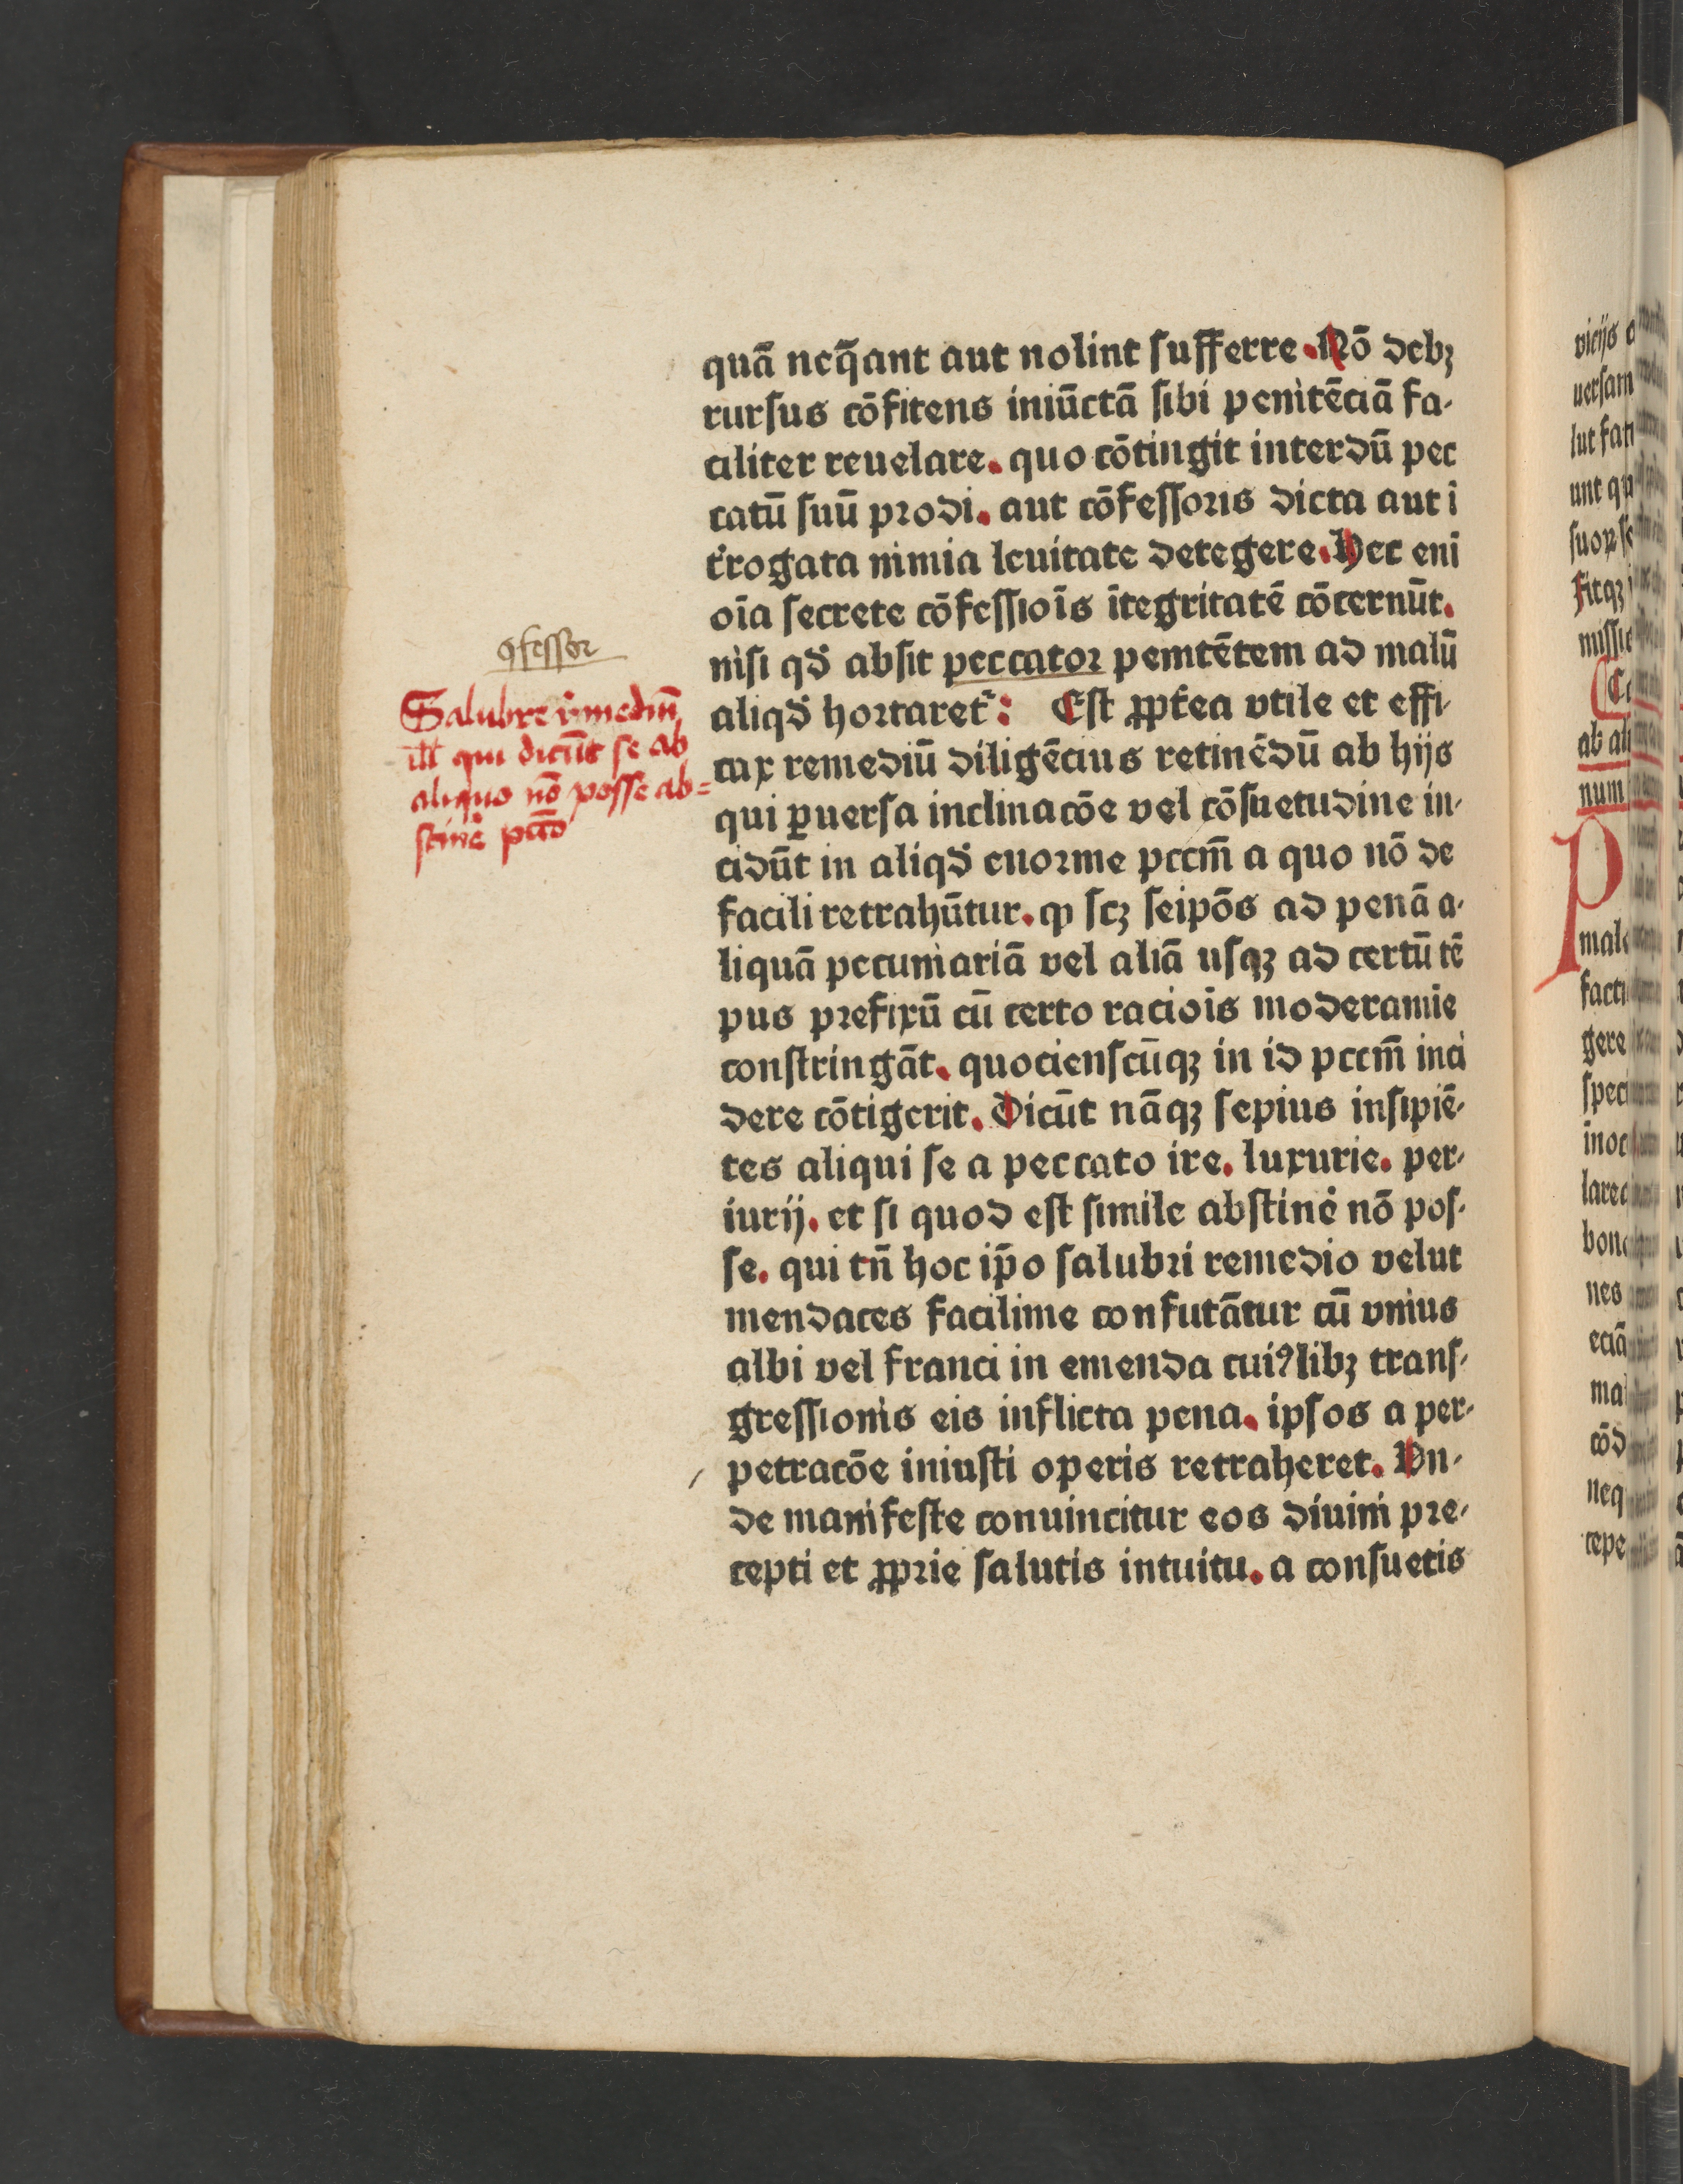 quā neq̄ant aut nolint sufferre. Nō debꝫ
rursus cōfitens iniūctā sibi penitēciā fa-
ciliter reuelare. quo cōtingit interdū pec
catū suū prodi. aut cōfessoris dicta aut ī
t̉rogata nimia leuitate detegere. Hec enī
oīa secrete cōfessiōis ītegritatē cōcernūt.
nisi qd̓ absit peccator penitētem ad malū
aliqd̓ hortaret᷑: Est ꝓpt̉ea vtile et effi-
cax remediū diligēcius retinēdū ab hijs
qui ꝑuersa inclinacōe vel cōsuetudine in-
cidūt in aliqd̓ enorme pccm̄ a quo nō de
facili retrahūtur. ꝙ scꝫ seipōs ad penā a-
liquā pecuniariā vel aliā usqꝫ ad certū tē
pus prefixū cū certo raciōis moderamīe
constringāt. quocienscūqꝫ in id pccm̄ inci
dere cōtigerit. Dicūt nāqꝫ sepius insipiē-
tes aliqui se a peccato ire. luxurie. per-
iurij. et si quod est simile abstinė nō pos-
se. qui tn̄ hoc ip̄o salubri remedio velut
mendaces facilime confutātur cū vnius
albi vel franci in emenda cuiꝰlibꝫ trans-
gressionis eis inflicta pena. ipsos a per-
petracōe iniusti operis retraheret. Vn-
de manifeste conuincitur eos diuini pre-
cepti et ꝓprie salutis intuitu. a consuetis
ꝯfessor
Salubre r̉mediū
ill̄ qui dicūt se ab
aliquo nō posse ab=
stinė pc̄cō
vicijs
uersam
lut
unt
suoꝝ
fitqꝫ
ab
num
P
gere
nes
eciā
neq
cepe